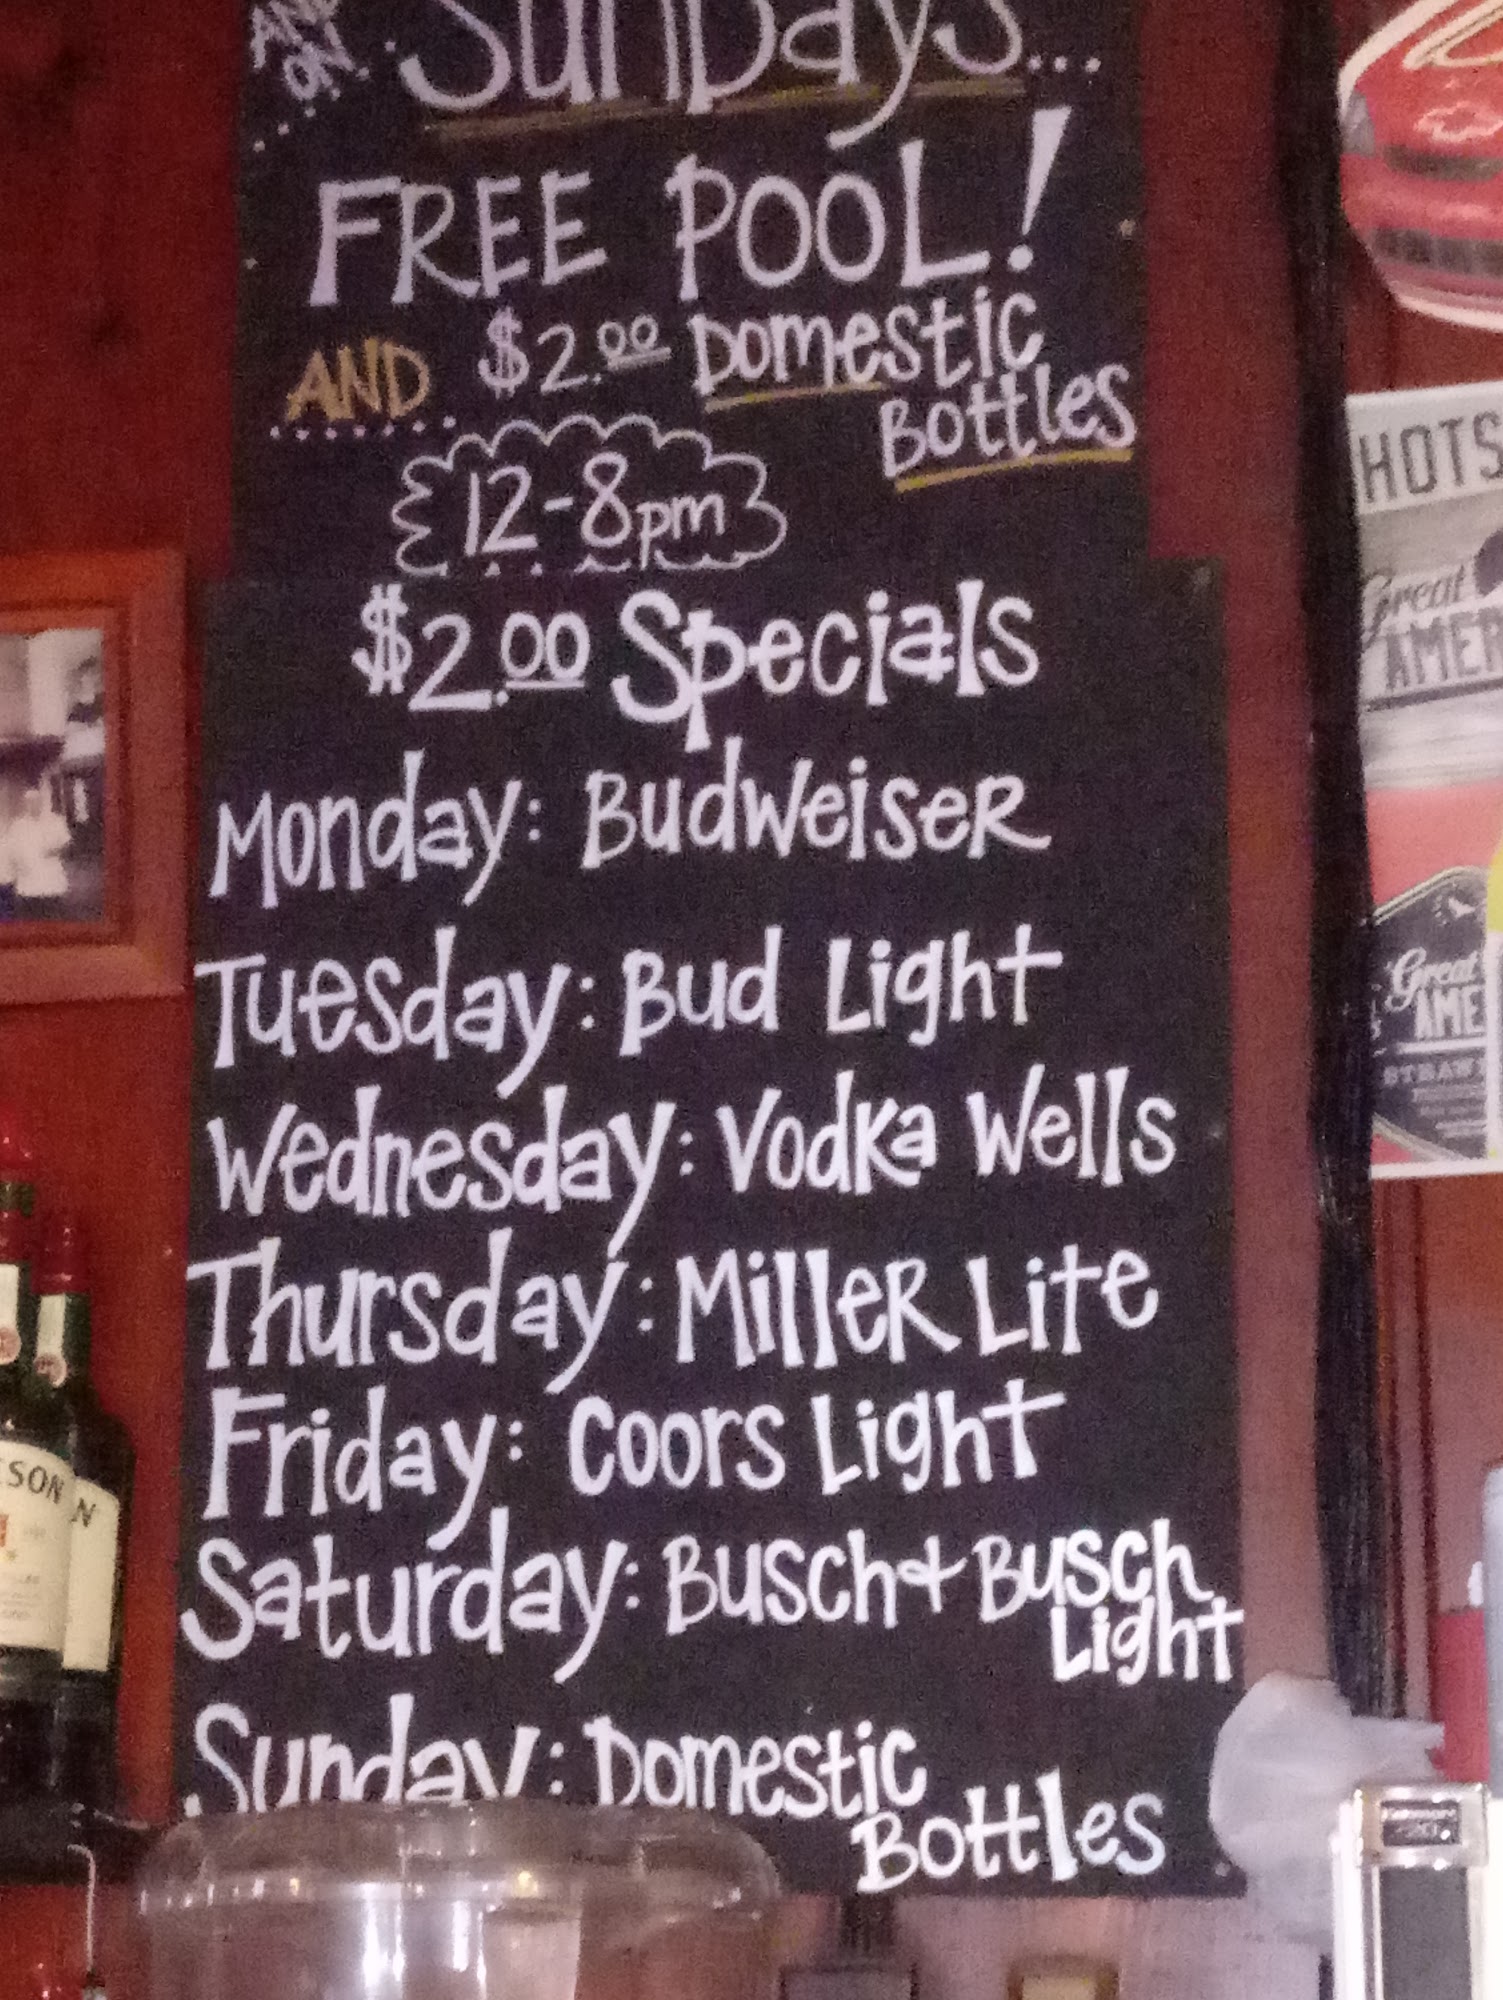 AND
ON!
Sundays...
FREE POOL!
AND $2.00 Domestic
Bottles
12-8pm
$2.00 Specials
Monday: Budweiser
Tuesday: Bud Light
Wednesday: Vodka Wells
Thursday: Miller Lite
Friday: Coors Light
Saturday: Busch & Busch
Light
Sunday: Domestic
Bottles
HOTS
Great
AMER
Great
AME
STRAW
SON
N